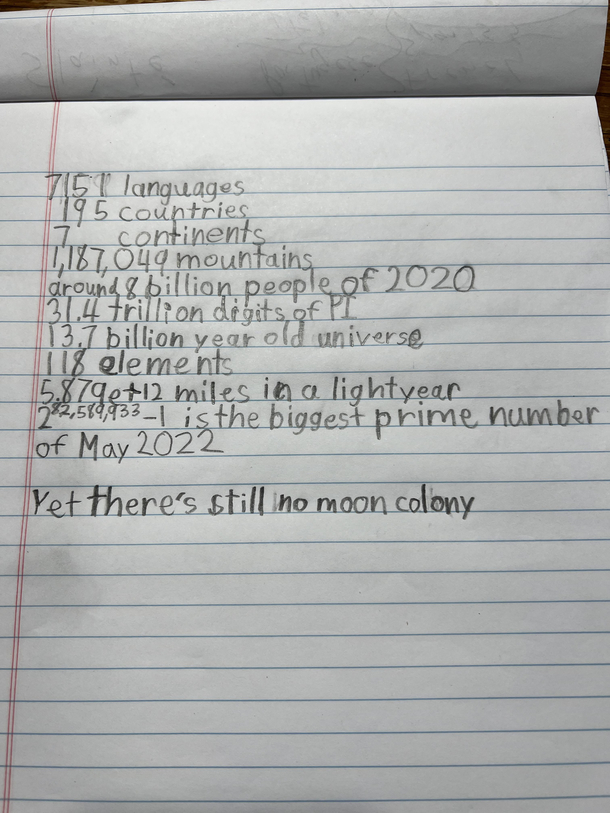 7151 languages
195 countries
7 continents
1,187,049 mountains
around 8 billion people of 2020
31.4 trillion digits of PI
13.7 billion year old universe
118 elements
5.879e+12 miles in a lightyear
2^82,589,933-1 is the biggest prime number
of May 2022
Yet there's still no moon colony